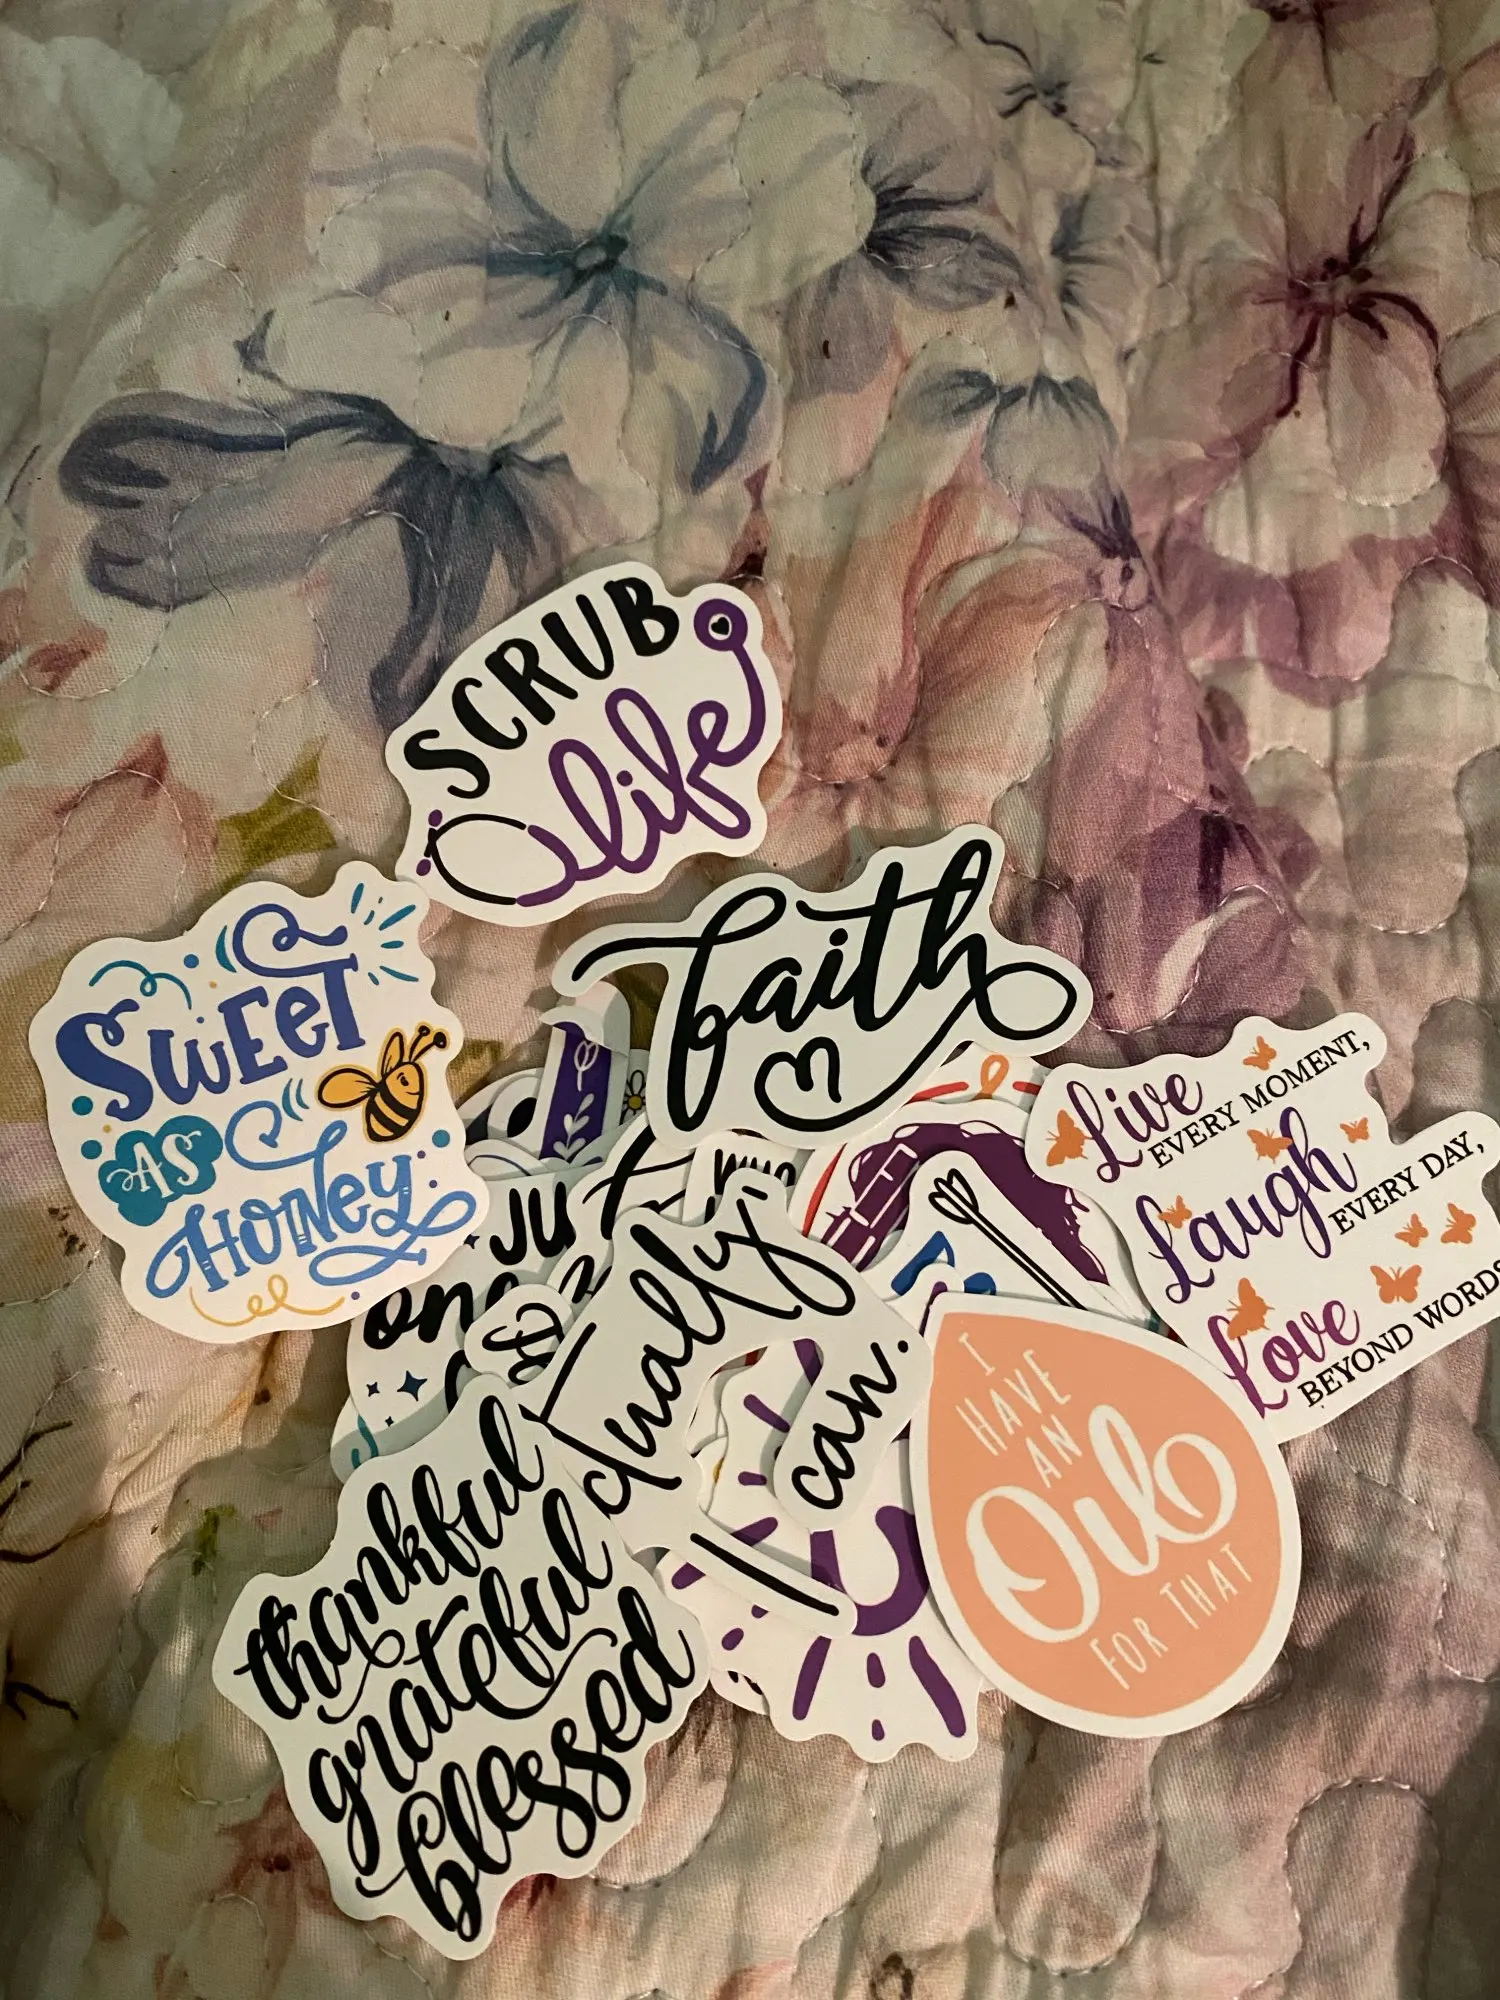 SCRUB
life
faith
SWEET
AS
HONEY
Live
EVERY MOMENT,
Laugh
EVERY DAY,
Love
BEYOND WORDS
JU
one
tually
I
can.
I
HAVE
AN
Oil
FOR THAT
thankful
grateful
blessed